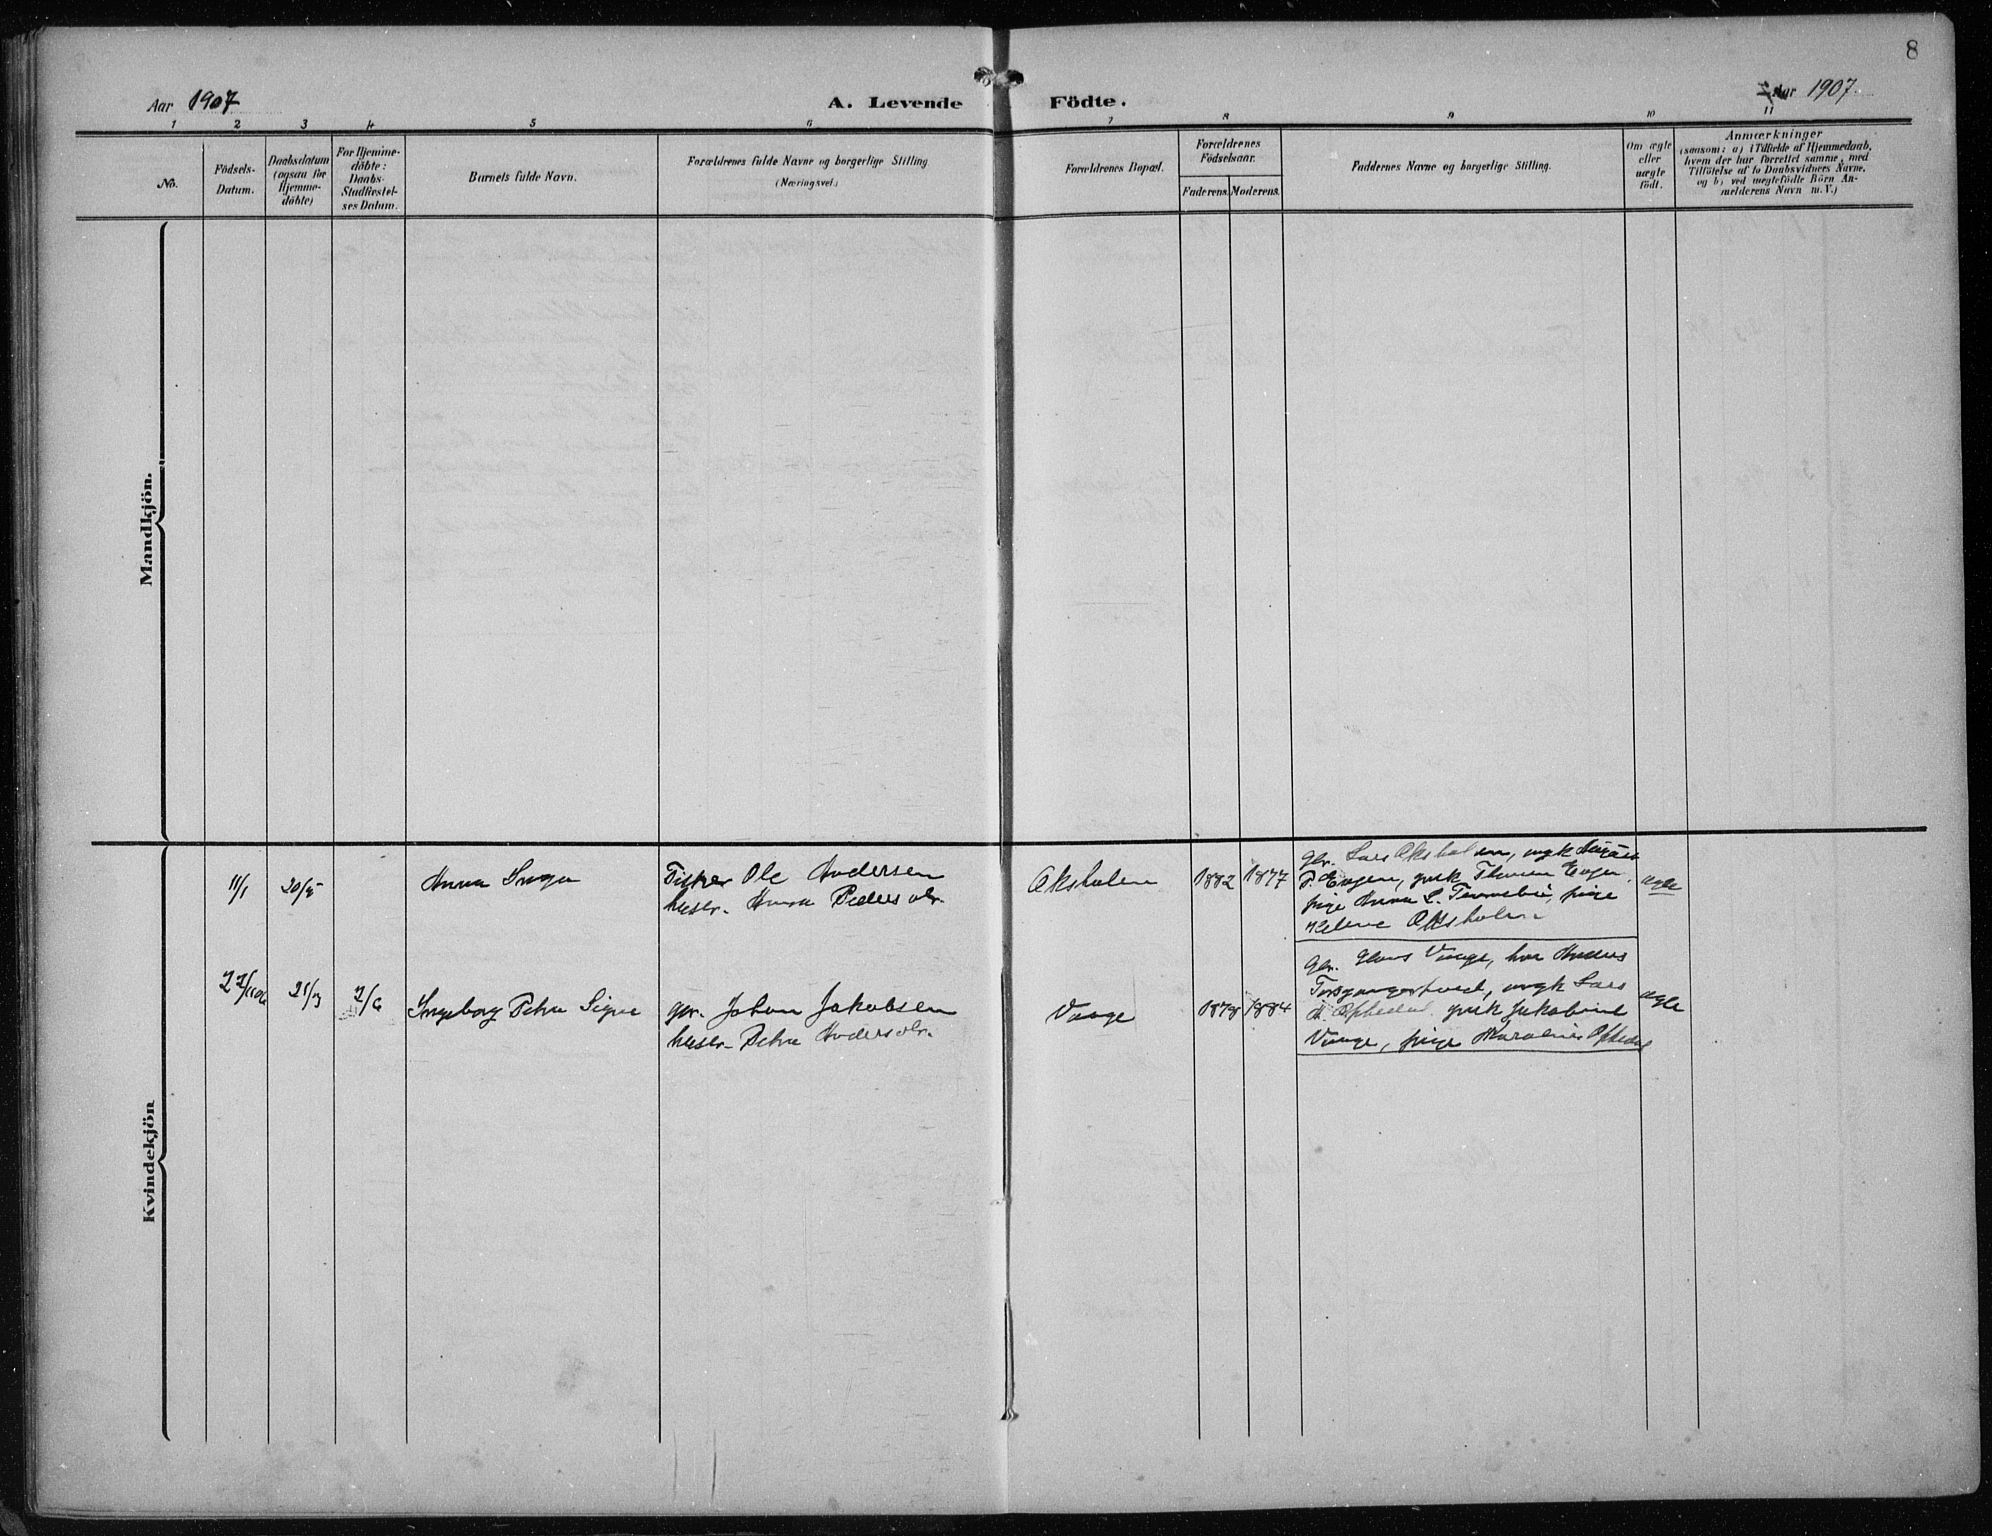 8
Aar 1907
A. Levende Födte.
Aar 1907.
1 2 3 4 5 6 7 8 9 10 11
No.
Födsels-
Datum.
Daabsdatum
(ogsaa for
Hjemme-
döbte)
For Hjemme-
döbte:
Daabs-
Stadfæstel-
ses Datum.
Barnets fulde Navn.
Forældrenes fulde Navne og borgerlige Stilling
(Næringsvei.)
Forældrenes Bopæl.
Forældrenes
Födselsaar.
Faderens. Moderens.
Faddernes Navne og borgerlige Stilling.
Om ægte
eller
uægte
födt.
Anmærkninger
(saasom: a) i Tilfælde af Hjemmedaab,
hvem der har forrettet samme, med
Tilföielse af to Daabsvidners Navne,
og b) ved uægtefödte Börn An-
melderens Navn m. V.)
Mandkjön.
Kvindekjön
11/1
20/5
Anna Inga
Fisker Ole Andersen
hustr. Anna Pedersdtr.
Aksholen
1882 1877
gbr. Lars Aksholen, ungk
P. Eagen, gmk Eagen,
pige Anna L. pige
Helene Aksholen
ægte
27/1106
21/3
2/6
Ingeborg Petra Signe
gbr. Johan Jakobsen
hustr. Petra Andersdtr.
Vaage
1878 1884
gbr. Vaage, Anders
ungk Lars
Ofstedal gmk Jakobine
Vaage, pige Ofstedal
ægte